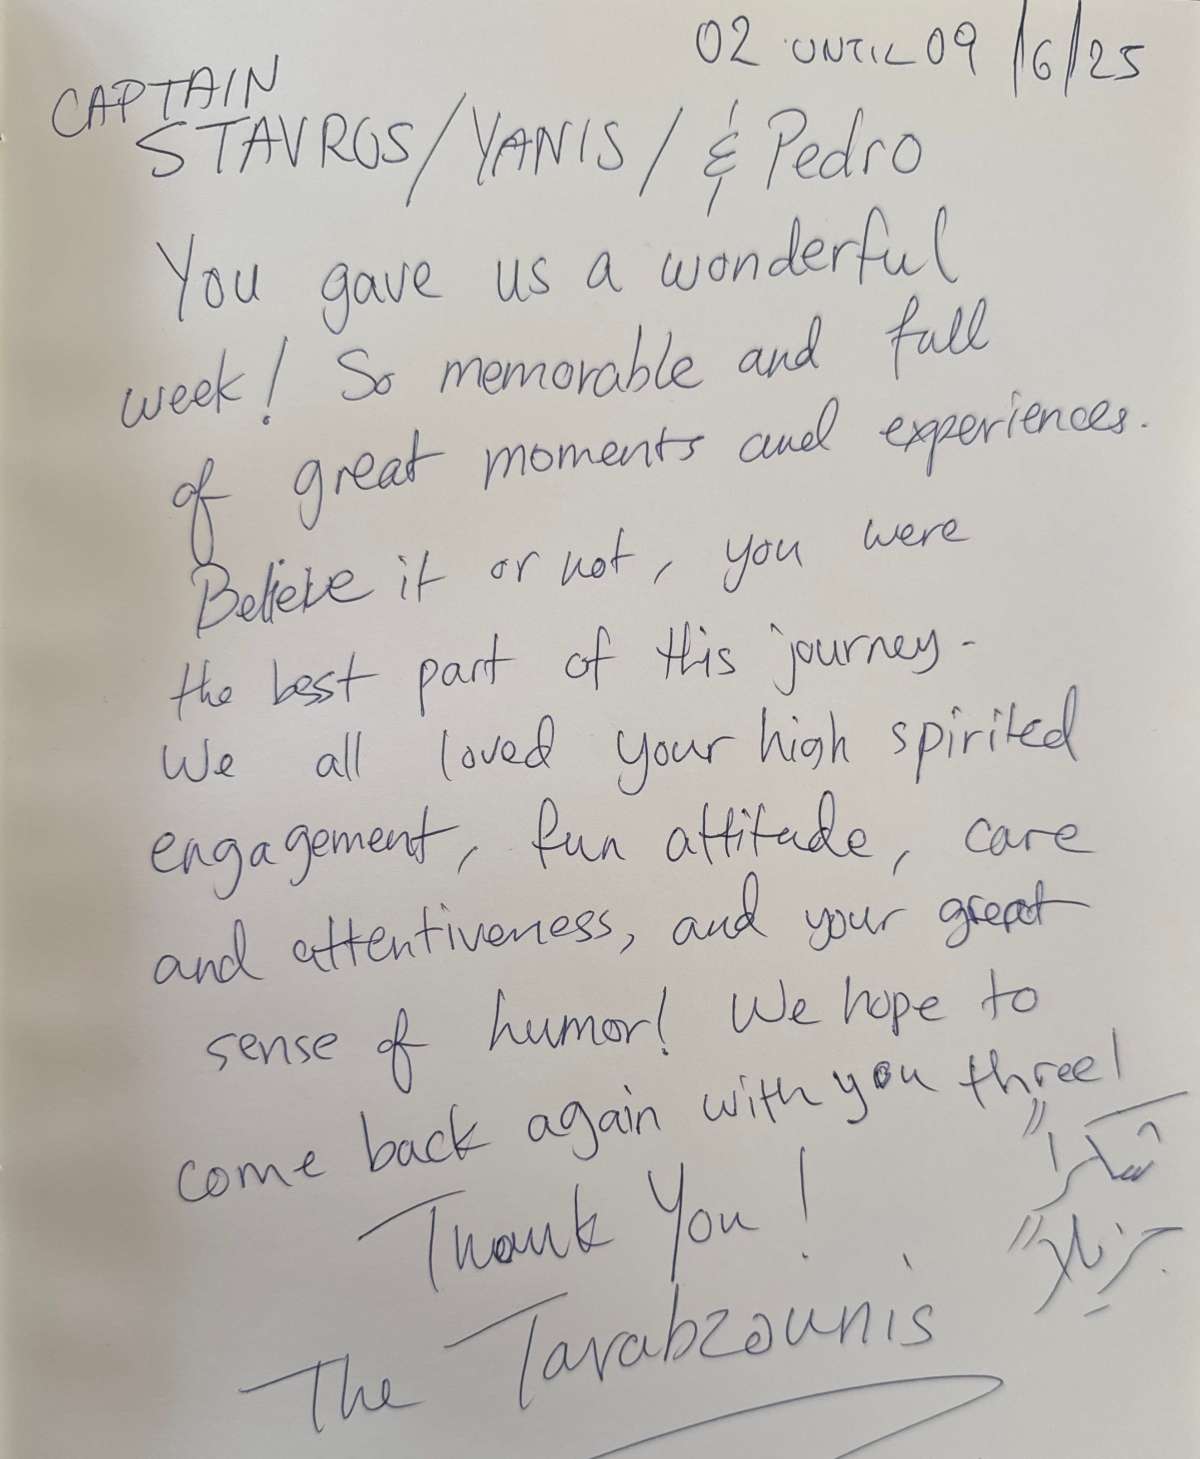 02 UNTIL 09 /6/25
CAPTAIN
STAVROS/YANIS/ & Pedro
You gave us a wonderful
week! So memorable and full
of great moments and experiences.
Believe it or not, you were
the best part of this journey.
We all loved your high spirited
engagement, fun attitude, care
and attentiveness, and your great
sense of humor! We hope to
come back again with you three!
شكراً
جزيلاً
Thank You!
The Tarabzounis